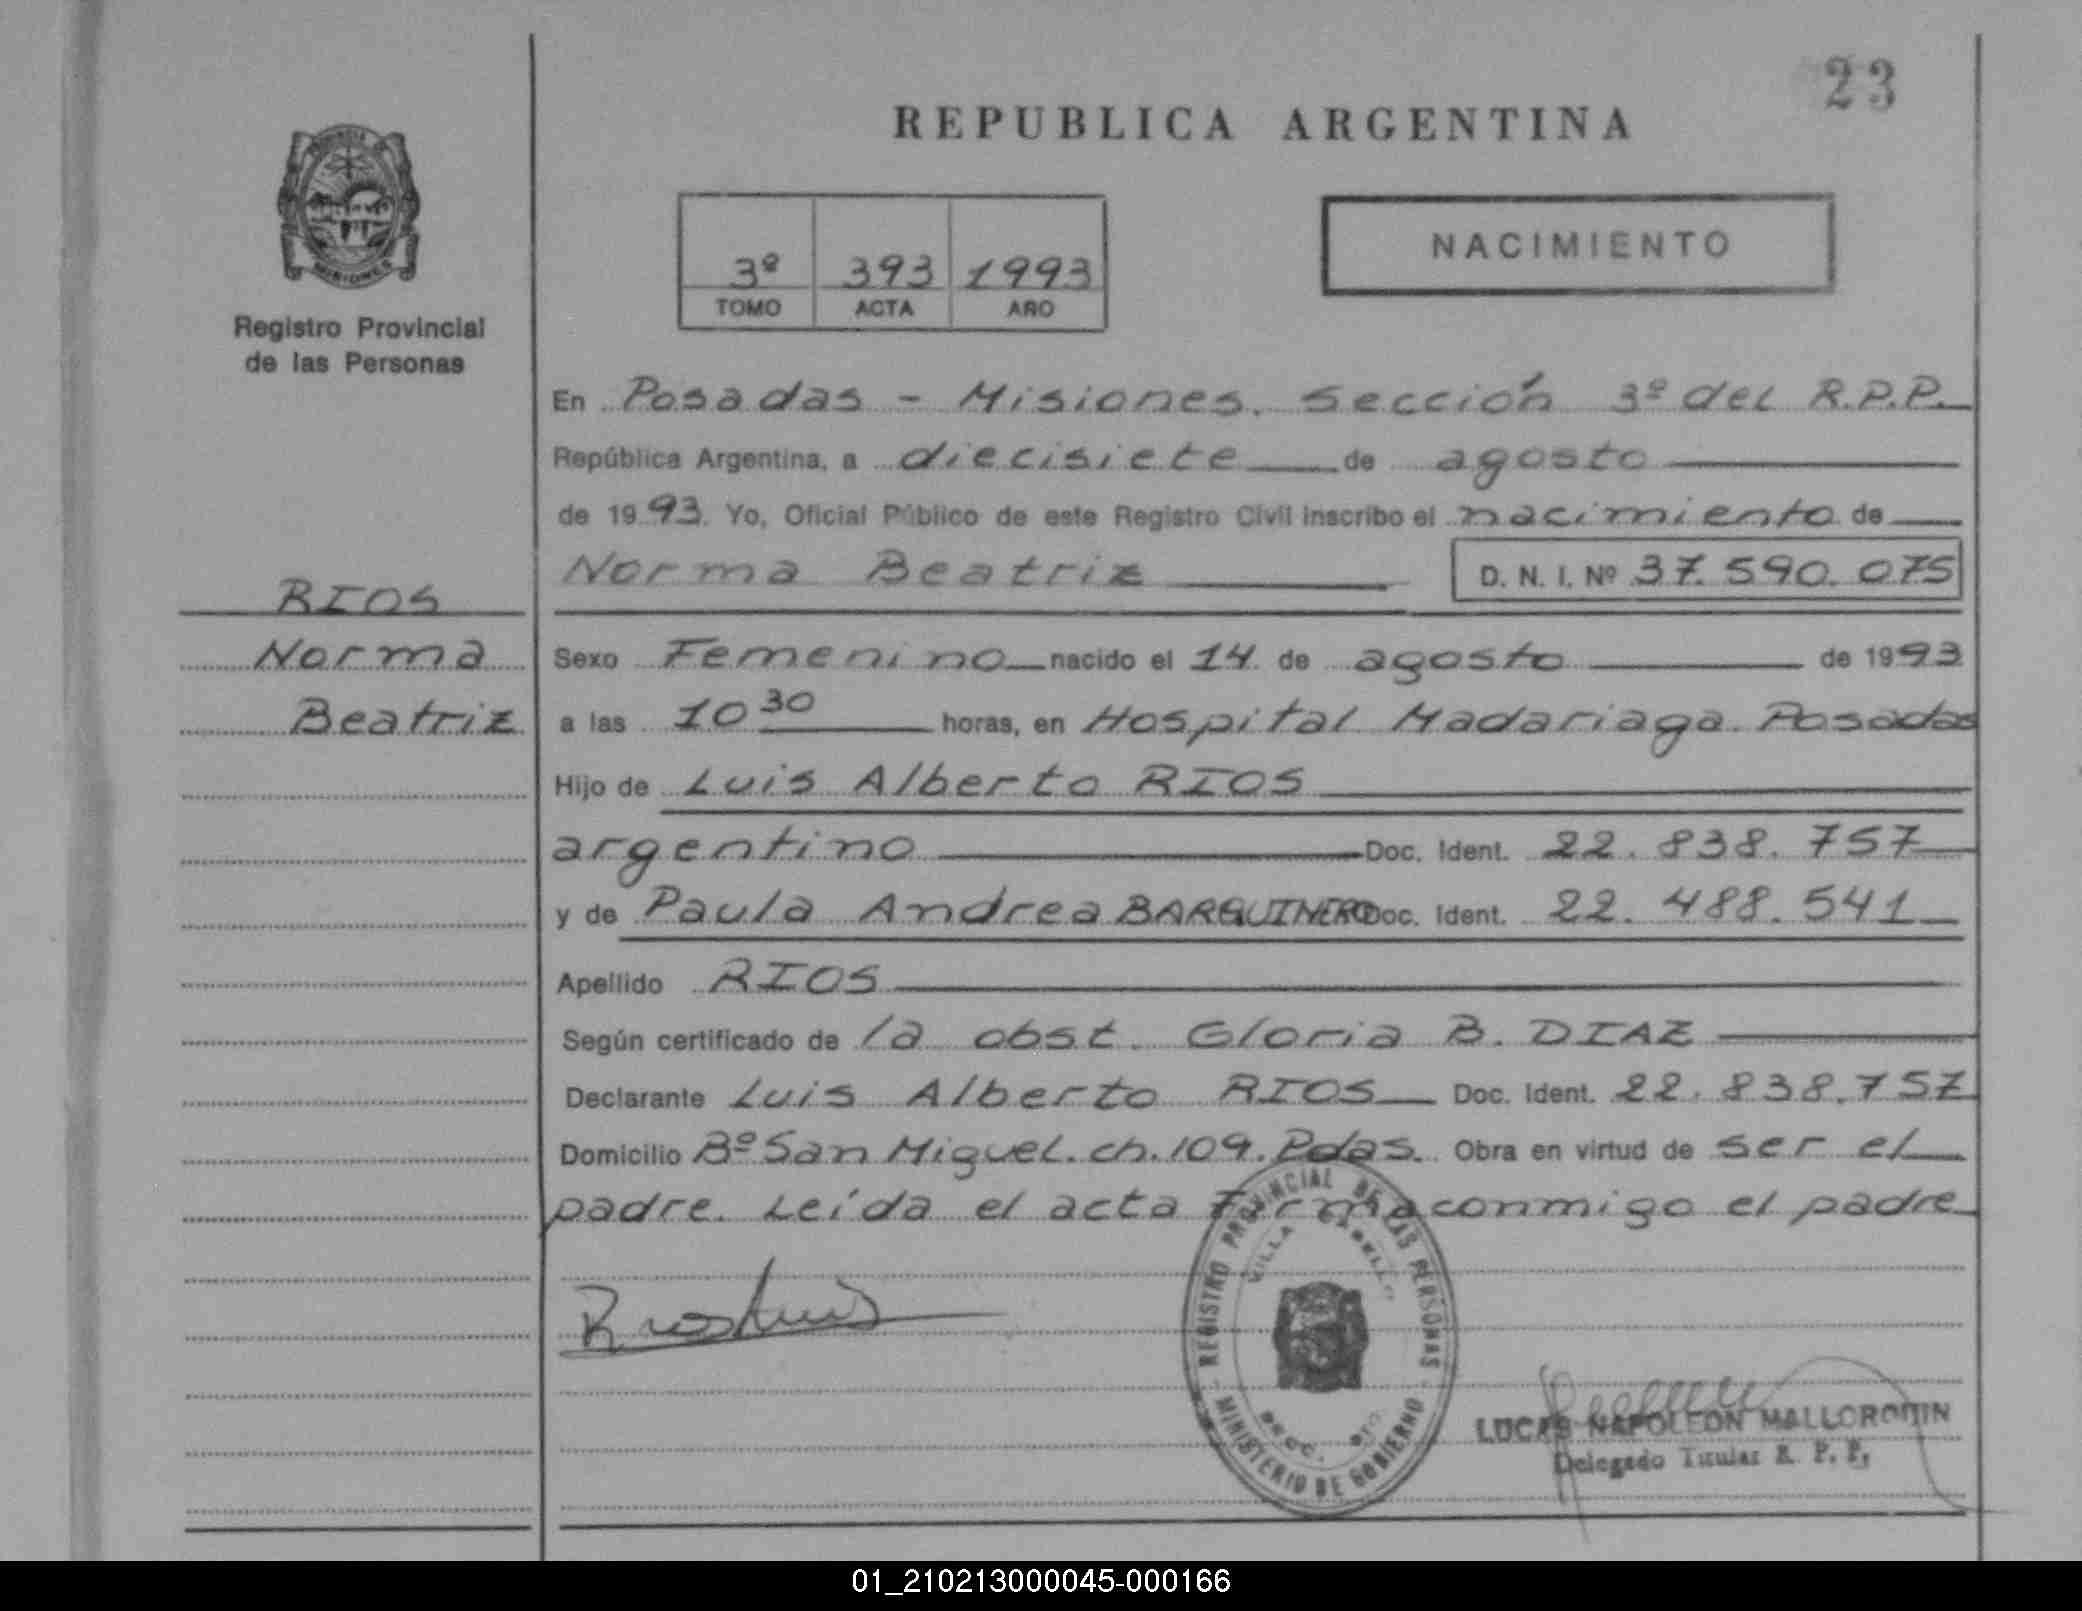 23
REPUBLICA ARGENTINA
MISIONES
Registro Provincial
de las Personas
3º 393 1993
TOMO ACTA AÑO
NACIMIENTO
RIOS
Norma
Beatriz
En Posadas - Misiones. Sección 3º del R.P.P.
República Argentina, a diecisiete de agosto
de 1993. Yo, Oficial Público de este Registro Civil inscribo el nacimiento de
Norma Beatriz D. N. I. Nº 37.590.075
Sexo Femenino nacido el 14 de agosto de 1993
a las 10 30 horas, en Hospital Madariaga. Posadas
Hijo de Luis Alberto RIOS
argentino Doc. Ident. 22.838.757
y de Paula Andrea BARQUINERO Doc. Ident. 22.488.541
Apellido RIOS
Según certificado de la obst. Gloria B. DIAZ
Declarante Luis Alberto RIOS Doc. Ident. 22.838.757
Domicilio Bº San Miguel. ch. 109. Pdas. Obra en virtud de ser el
padre. Leída el acta firma conmigo el padre
Rios Luis
REGISTRO PROVINCIAL DE LAS PERSONAS
VILLA
MINISTERIO DE GOBIERNO
LUCAS NAPOLEON
Delegado Titular R. P. P.
01_210213000045-000166